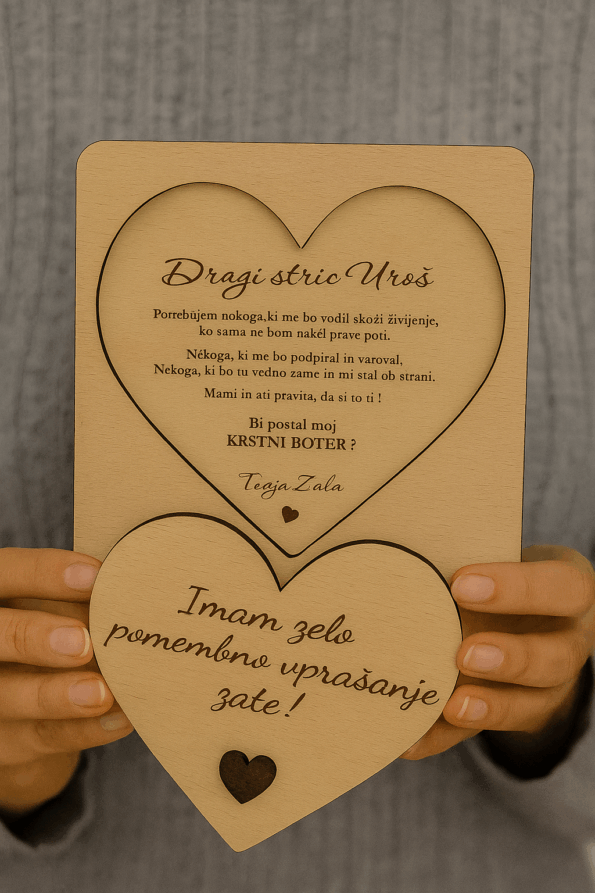 Dragi stric Uroš
Porrebujem nokoga,ki me bo vodil skoźi živijenje,
ko sama ne bom nakél prave poti.
Nékoga, ki me bo podpiral in varoval,
Nekoga, ki bo tu vedno zame in mi stal ob strani.
Mami in ati pravita, da si to ti !
Bi postal moj
KRSTNI BOTER ?
Tvoja Zala
Imam zelo
pomembno vprašanje
zate !